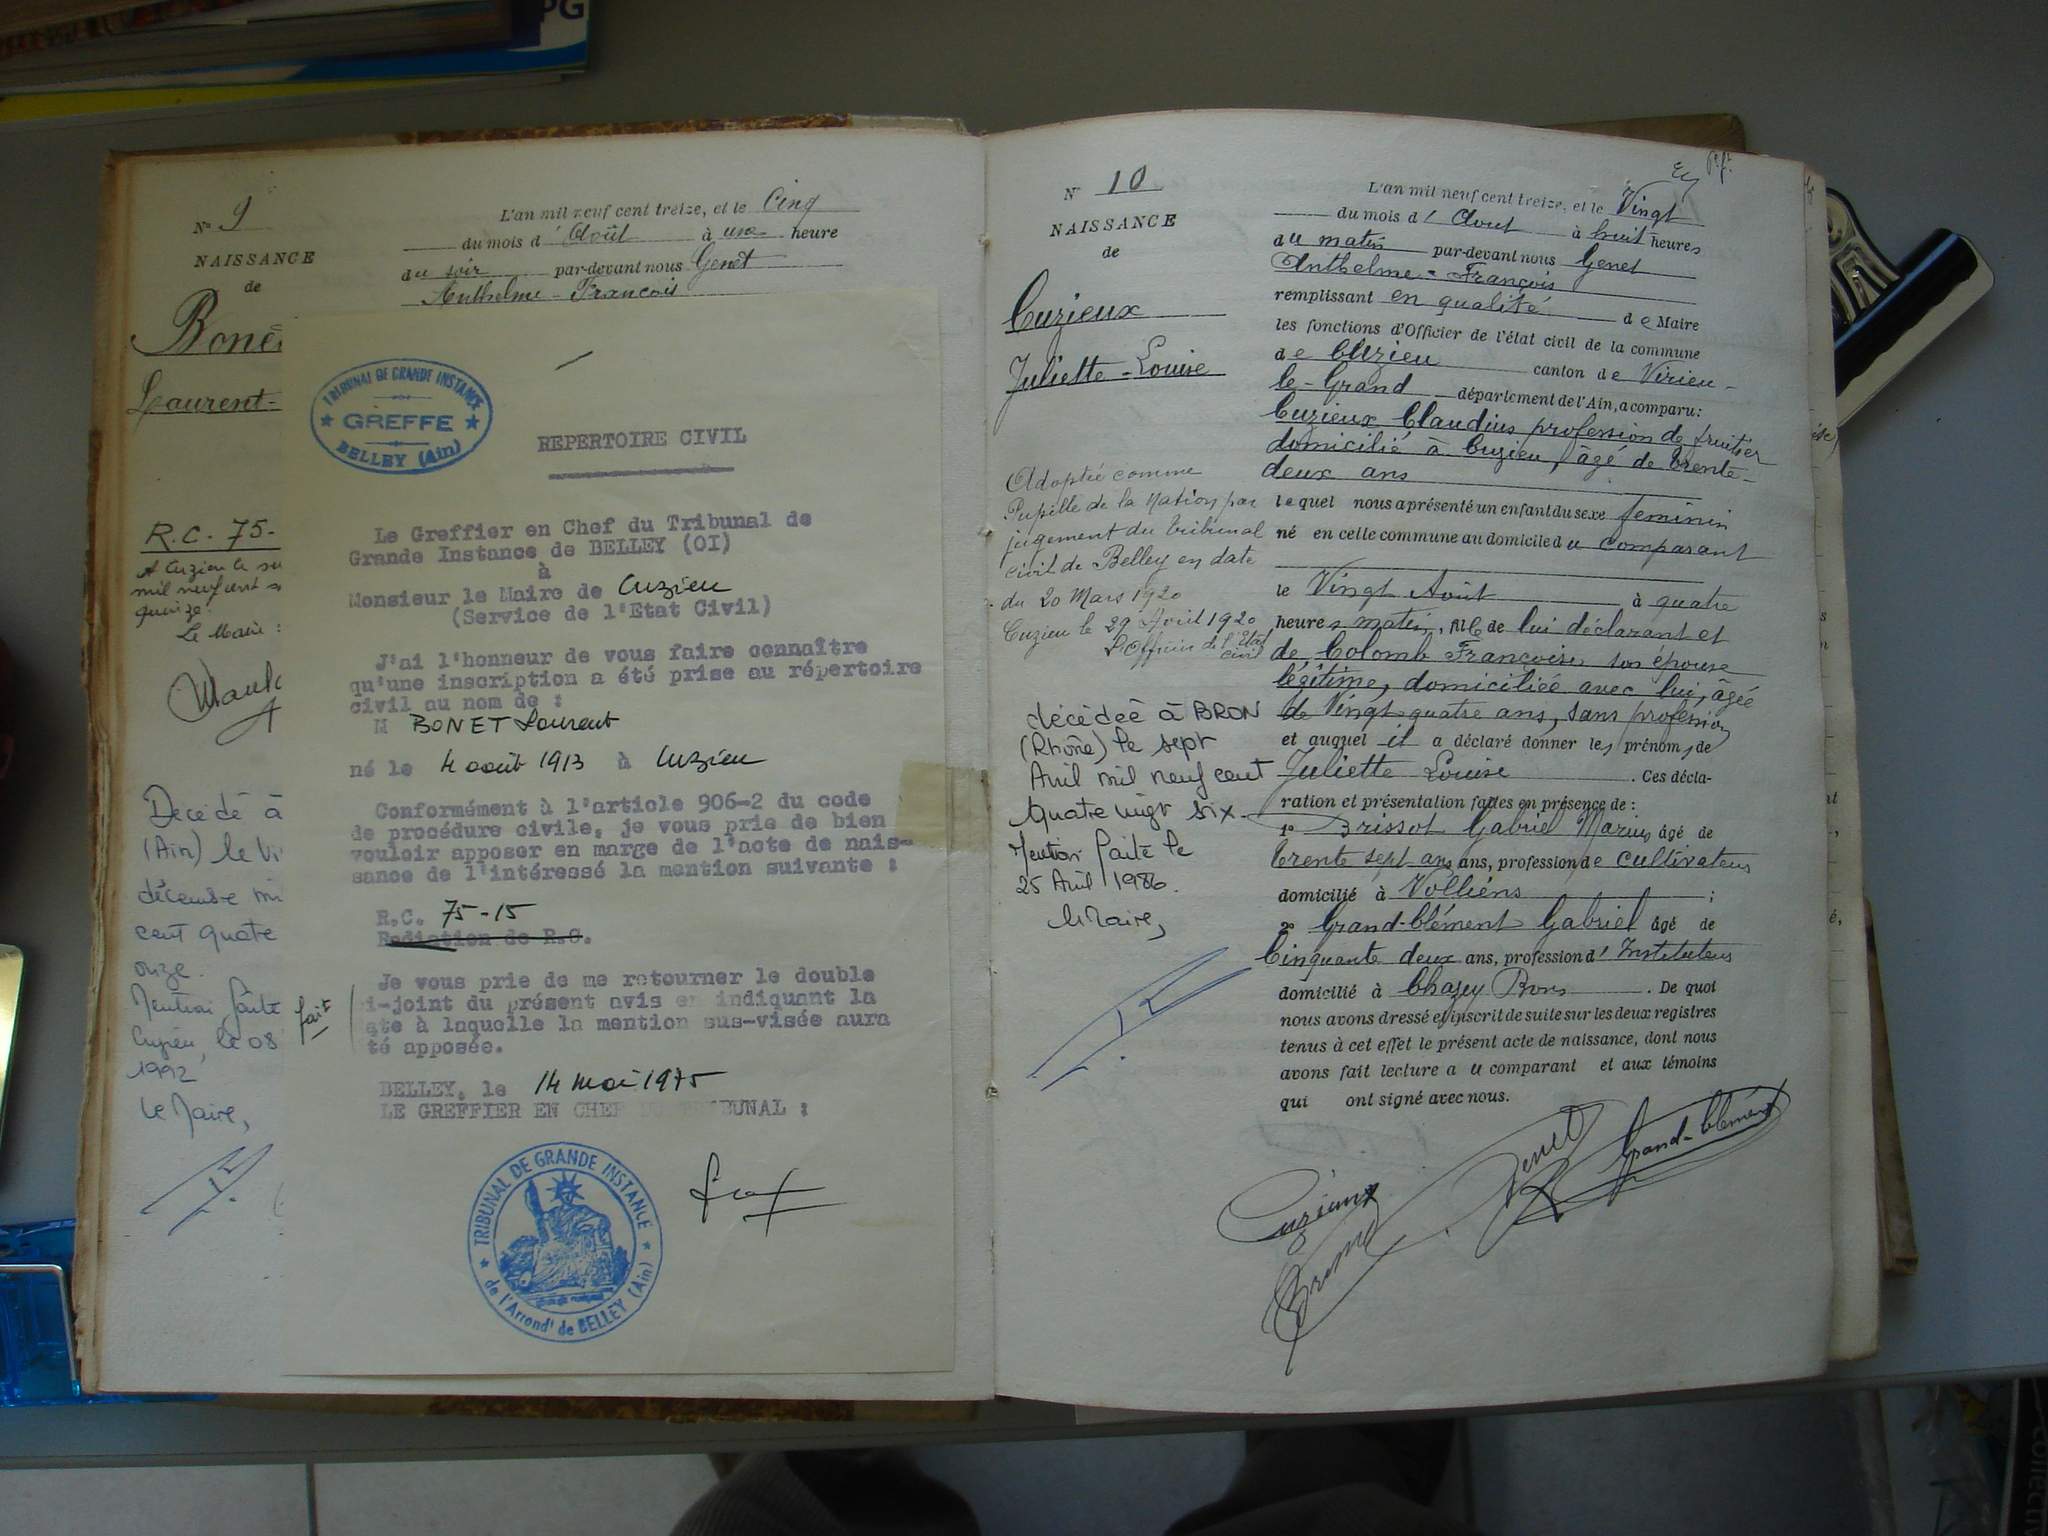 PG
N° 9
NAISSANCE
de
Bone
Laurent-
R.C. 75-
A Cuzieu le
mil neuf cent
quinze.
Le Maire :
Décédé à
(Ain) le Vi
décembre mi
cent quatre
onze.
Mention faite
Cuzieu, le 08
1992
Le Maire,
L'an mil neuf cent treize, et le Cinq
du mois d'Août à une heure
du soir par-devant nous Genet
Anthelme-François
TRIBUNAL DE GRANDE INSTANCE
GREFFE
BELLEY (Ain)
REPERTOIRE CIVIL
Le Greffier en Chef du Tribunal de
Grande Instance de BELLEY (OI)
à
Monsieur le Maire de Cuzieu
(Service de l'Etat Civil)
J'ai l'honneur de vous faire connaître
qu'une inscription a été prise au répertoire
civil au nom de :
M BONET Laurent
né le 4 août 1913 à Cuzieu
Conformément à l'article 906-2 du code
de procédure civile, je vous prie de bien
vouloir apposer en marge de l'acte de nais-
sance de l'intéressé la mention suivante :
R.C. 75-15
Radiation de R.C.
Je vous prie de me retourner le double
i-joint du présent avis en indiquant la
ate à laquelle la mention sus-visée aura
té apposée.
fait
BELLEY, le 14 mai 1975
LE GREFFIER EN CHEF DU TRIBUNAL :
TRIBUNAL DE GRANDE INSTANCE
de l'Arrond' de BELLEY (Ain)
N° 10
NAISSANCE
de
Cuzieux
Juliette-Louise
Adoptée comme
Pupille de la Nation par
jugement du tribunal
civil de Belley en date
du 20 Mars 1920
Cuzieu le 29 Avril 1920
L'Officier de l'Etat
civil
décédée à BRON
(Rhône) le sept
Avril mil neuf cent
quatre vingt six.
Mention faite le
25 Avril 1986.
Le Maire,
L'an mil neuf cent treize, et le Vingt
du mois d'Aout à huit heures
du matin par-devant nous Genet
Anthelme-François
remplissant en qualité de Maire
les fonctions d'Officier de l'état civil de la commune
de Cuzieu canton de Virieu-
le-Grand département de l'Ain, a comparu :
Cuzieux Claudius profession de fruitier
domicilié à Cuzieu, âgé de trente-
deux ans
lequel nous a présenté un enfant du sexe féminin
né en celle commune au domicile du comparant
le Vingt Août à quatre
heures matin, fille de lui déclarant et
de Colomb Françoise son épouse
légitime, domiciliée avec lui, âgée
de Vingt quatre ans, sans profession
et auquel il a déclaré donner les prénoms de
Juliette Louise. Ces décla-
ration et présentation faites en présence de :
1° Brissot Gabriel Marius âgé de
trente sept ans ans, profession de cultivateur
domicilié à Volliéns ;
2° Grand-Clément Gabriel âgé de
Cinquante deux ans, profession d'Instituteur
domicilié à Chazey Bons. De quoi
nous avons dressé et inscrit de suite sur les deux registres
tenus à cet effet le présent acte de naissance, dont nous
avons fait lecture au comparant et aux témoins
qui ont signé avec nous.
Cuzieux
Genet
Grand-Clément